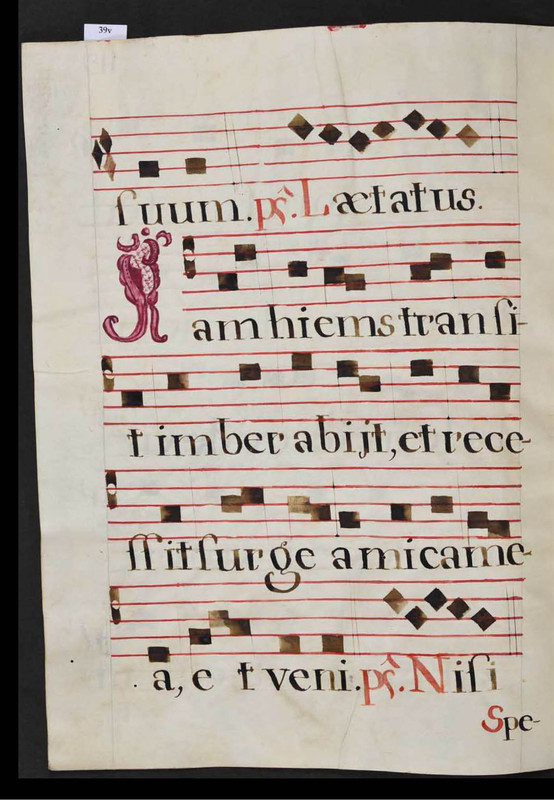 39v
ſuum. ps̃. Lætatus.
Jam hiems tranſi-
t imber abijt, et rece-
ſſit ſurge amica me-
a, et veni. ps̃. Niſi
Spe-